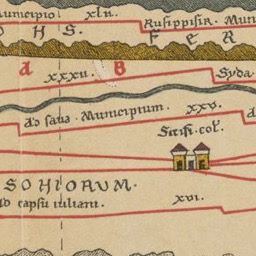 unicipio xlii.
Rusippisir. Muni
O H S. F E R
a B
xxxii. Syda
ad sava. Municipium. xxv.
Sitifi. col.
SOHIORUM.
ad capsū iuliani. xvi.